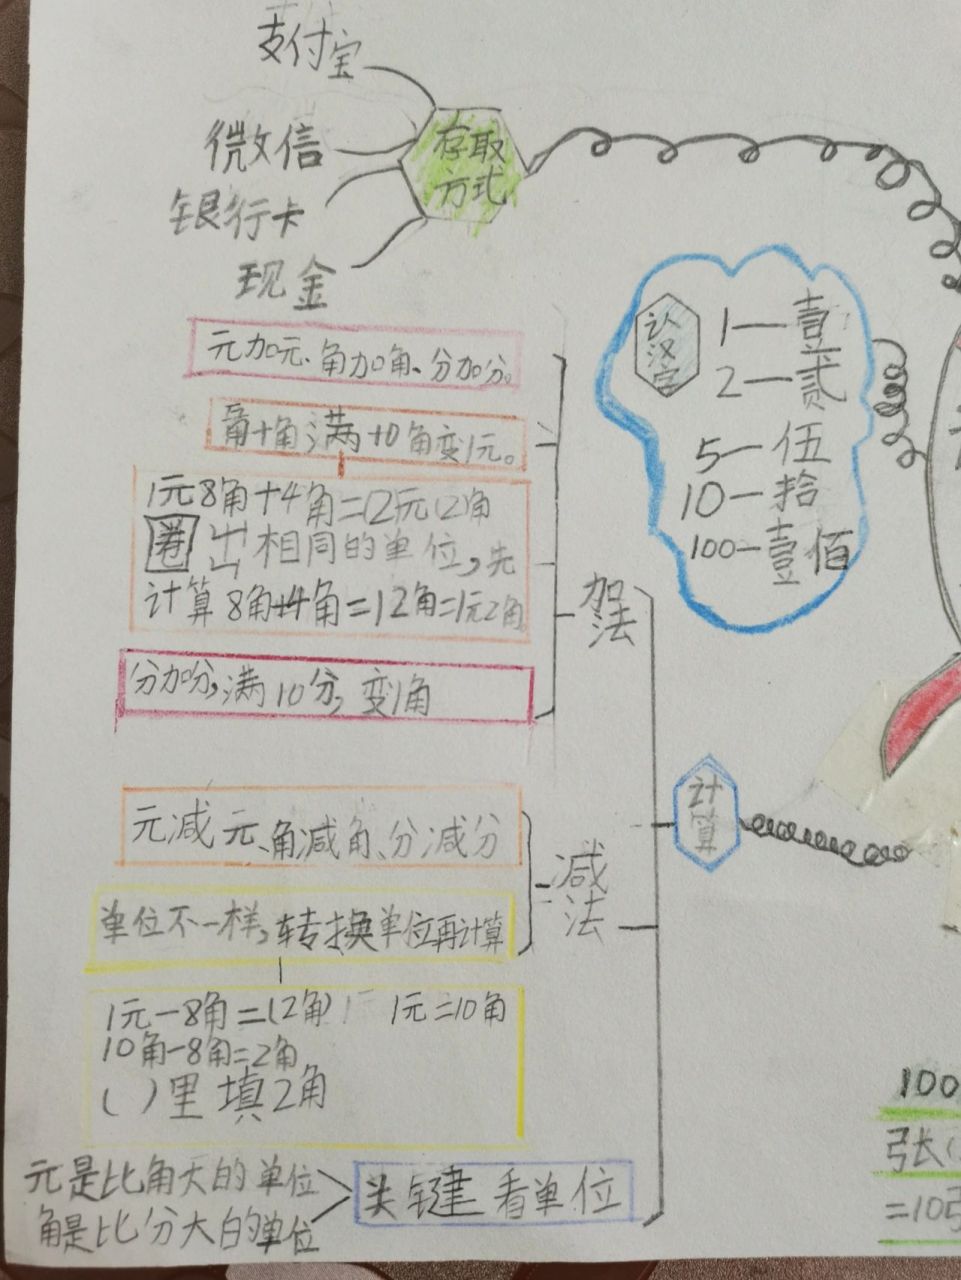 支付宝
微信
银行卡
现金
存取
方式
认汉字
1—壹
2—贰
5—伍
10—拾
100—壹佰
元加元、角加角、分加分。
角+角满10角变1元。
1元8角+4角=(2)元(2)角
圈出相同的单位,先
计算8角+4角=12角=1元2角。
加法
分加分,满10分,变1角
计算
元减元、角减角、分减分
减法
单位不一样,转换单位再计算
1元-8角=(2角) 1元=10角
10角-8角=2角
( )里填2角
元是比角大的单位
角是比分大的单位
关键看单位
100
=10